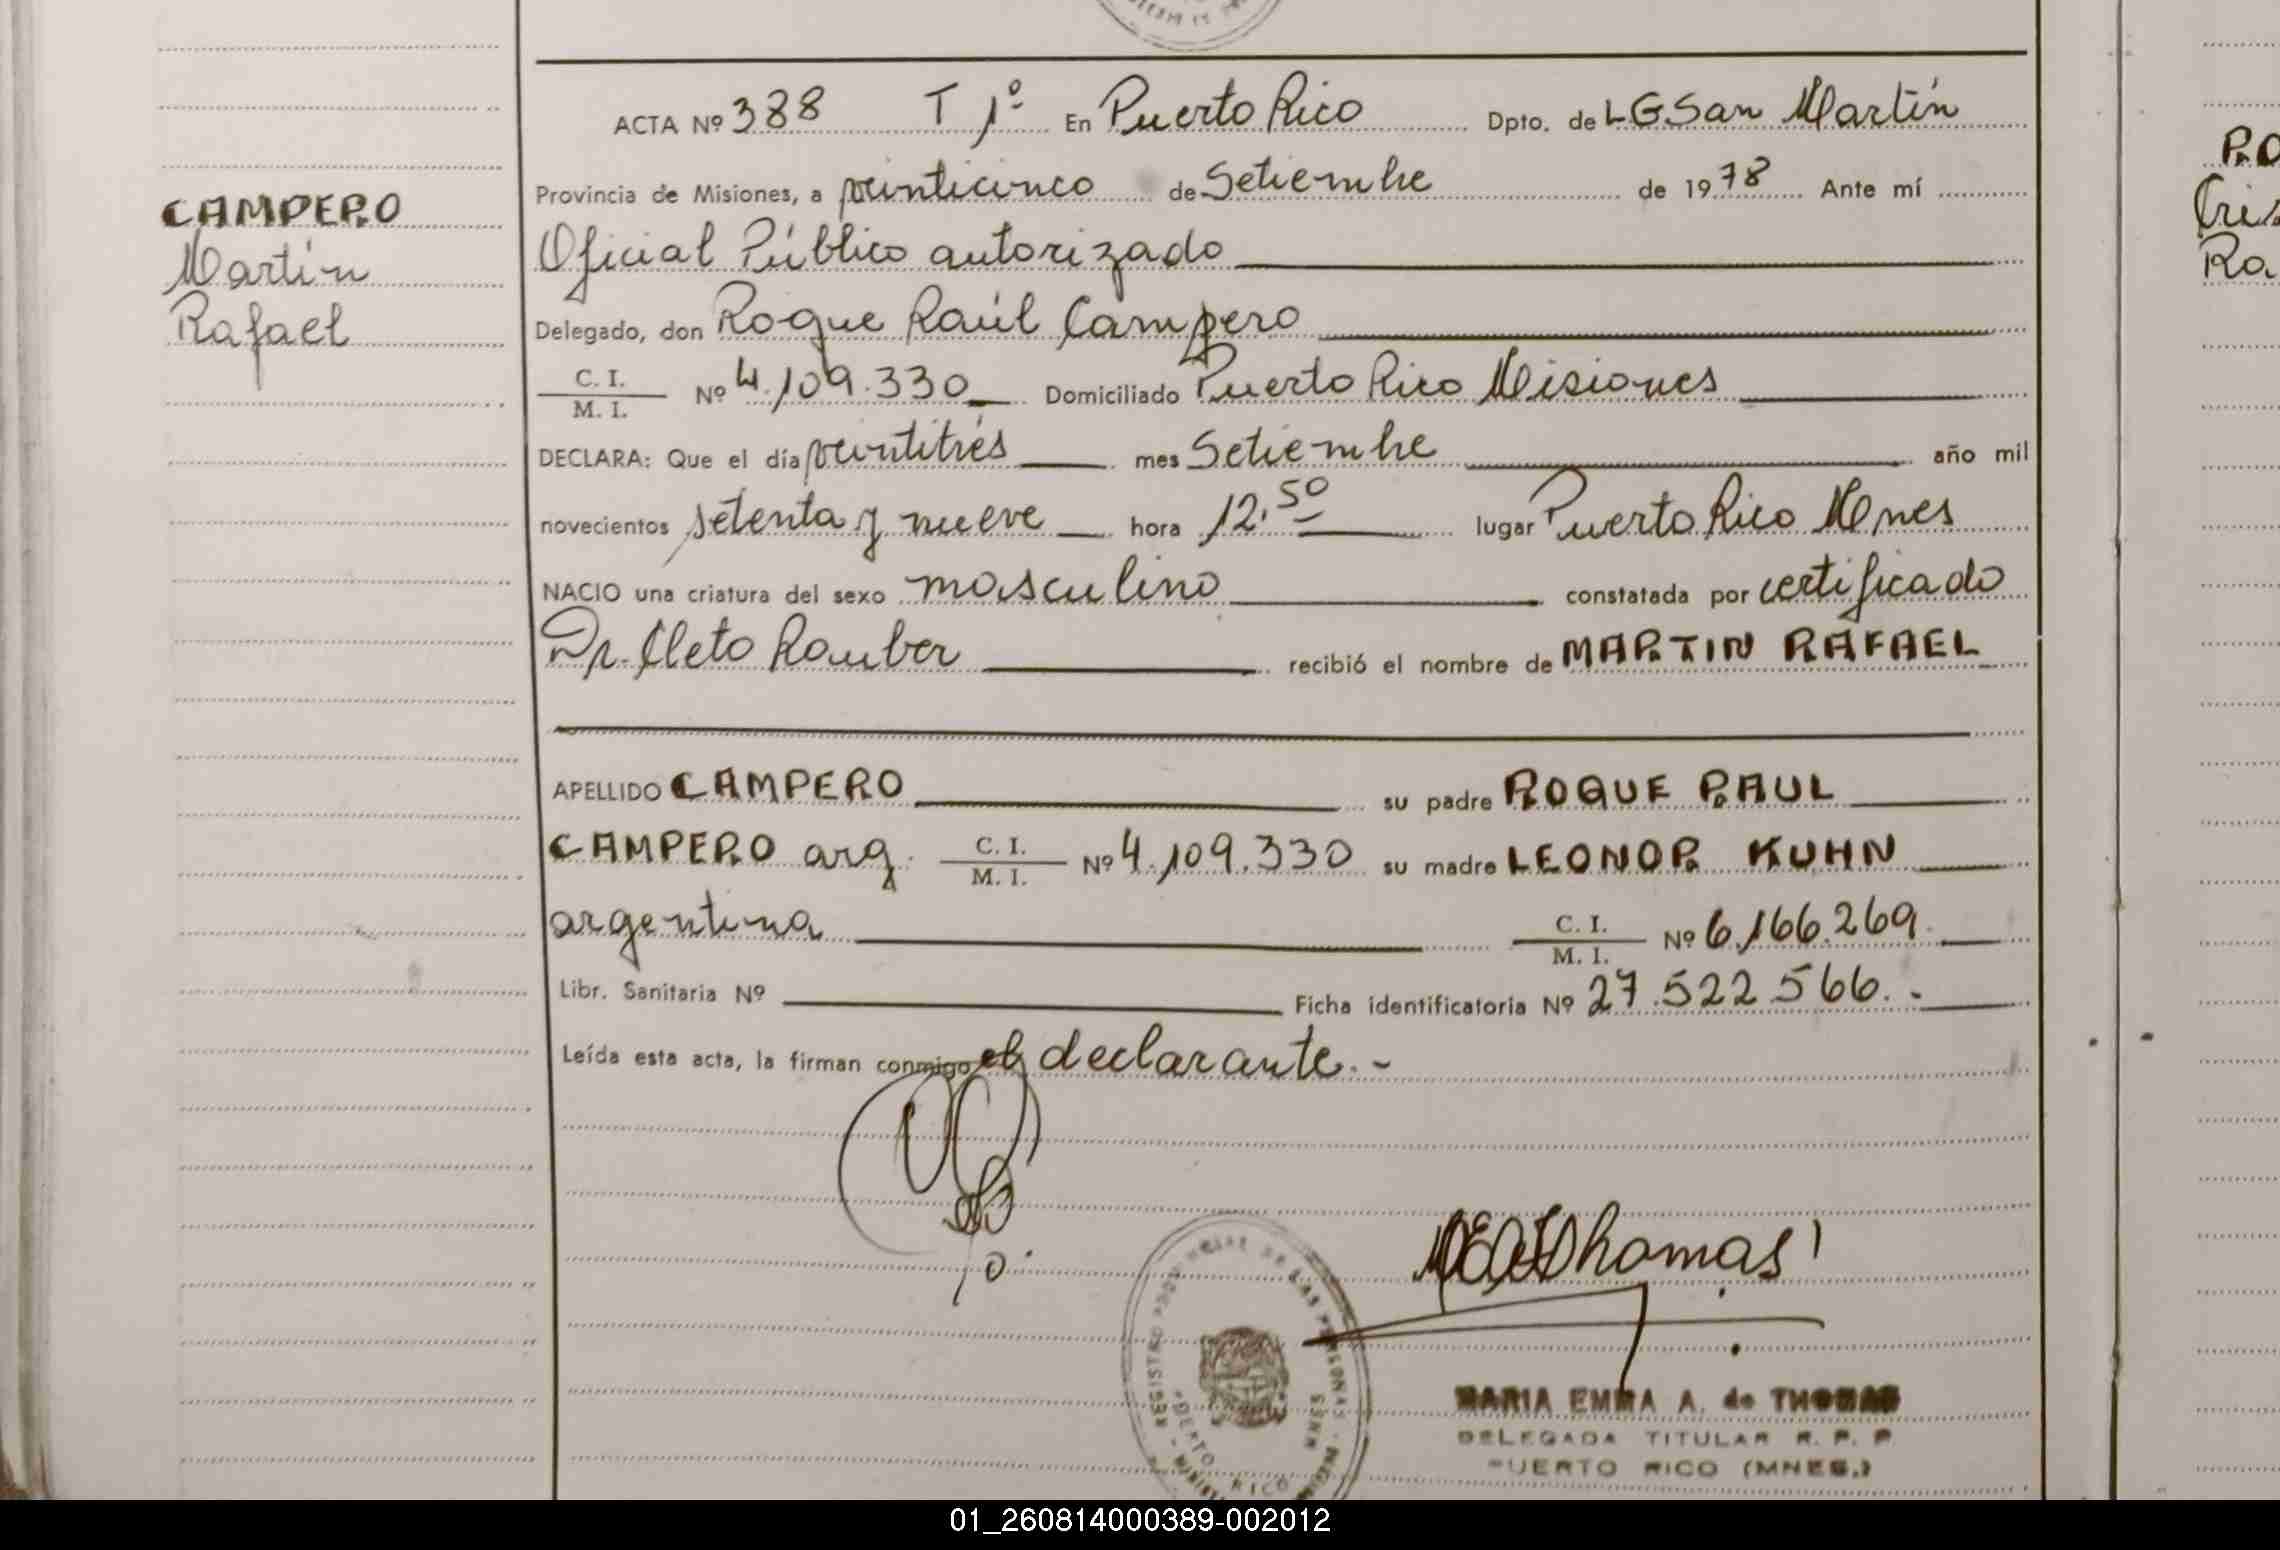 ACTA Nº 388 T 1º En Puerto Rico Dpto. de L.G.San Martín
Provincia de Misiones, a veinticinco de Setiembre de 1978 Ante mí
CAMPERO
Martín
Rafael
Oficial Público autorizado
Delegado, don Roque Raúl Campero
C. I.
M. I. Nº 4.109.330 Domiciliado Puerto Rico Misiones
DECLARA: Que el día veintitrés mes Setiembre año mil
novecientos setenta y nueve hora 12.50 lugar Puerto Rico Mnes
NACIO una criatura del sexo masculino constatada por certificado
Dr. Cleto Rauber recibió el nombre de MARTIN RAFAEL
APELLIDO CAMPERO su padre ROQUE RAUL
CAMPERO arg. C. I.
M. I. Nº 4.109.330 su madre LEONOR KUHN
argentina C. I.
M. I. Nº 6.166.269
Libr. Sanitaria Nº Ficha identificatoria Nº 27.522.566.-
Leída esta acta, la firman conmigo el declarante.-
MEAdeThomas
REGISTRO PROVINCIAL DE LAS PERSONAS
PUERTO RICO
MNES
MARIA EMMA A. de THOMAS
DELEGADA TITULAR R. P. P
PUERTO RICO (MNES.)
RO
Cris
Ra
01_260814000389-002012